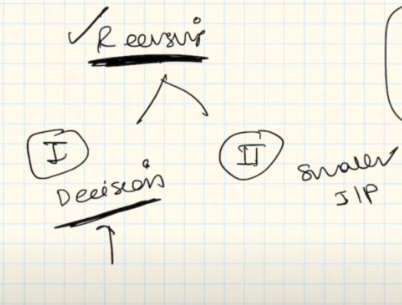 Recursion
I
II
Decision
Smaller
I/P